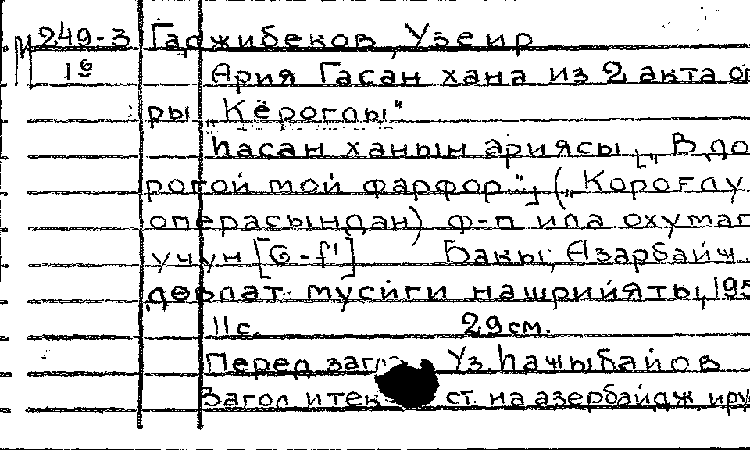 М 249-3 Гаджибеков, Узеир
1б Ария Гасан хана из 2 акта оп
ры „Кёроглы"
Һасан ханын ариясы [„В до
рогой мой фарфор"], („Короғлу
операсындан) ф-п ила охумаг
учун [G-f¹] Бакы, Азарбайҹ.
девлат. мусиги нашрийяты, 195
11с. 29 см.
Перед загл Уз. Һаҹыбайов
Загол и тек ст. на азербайдж. и ру